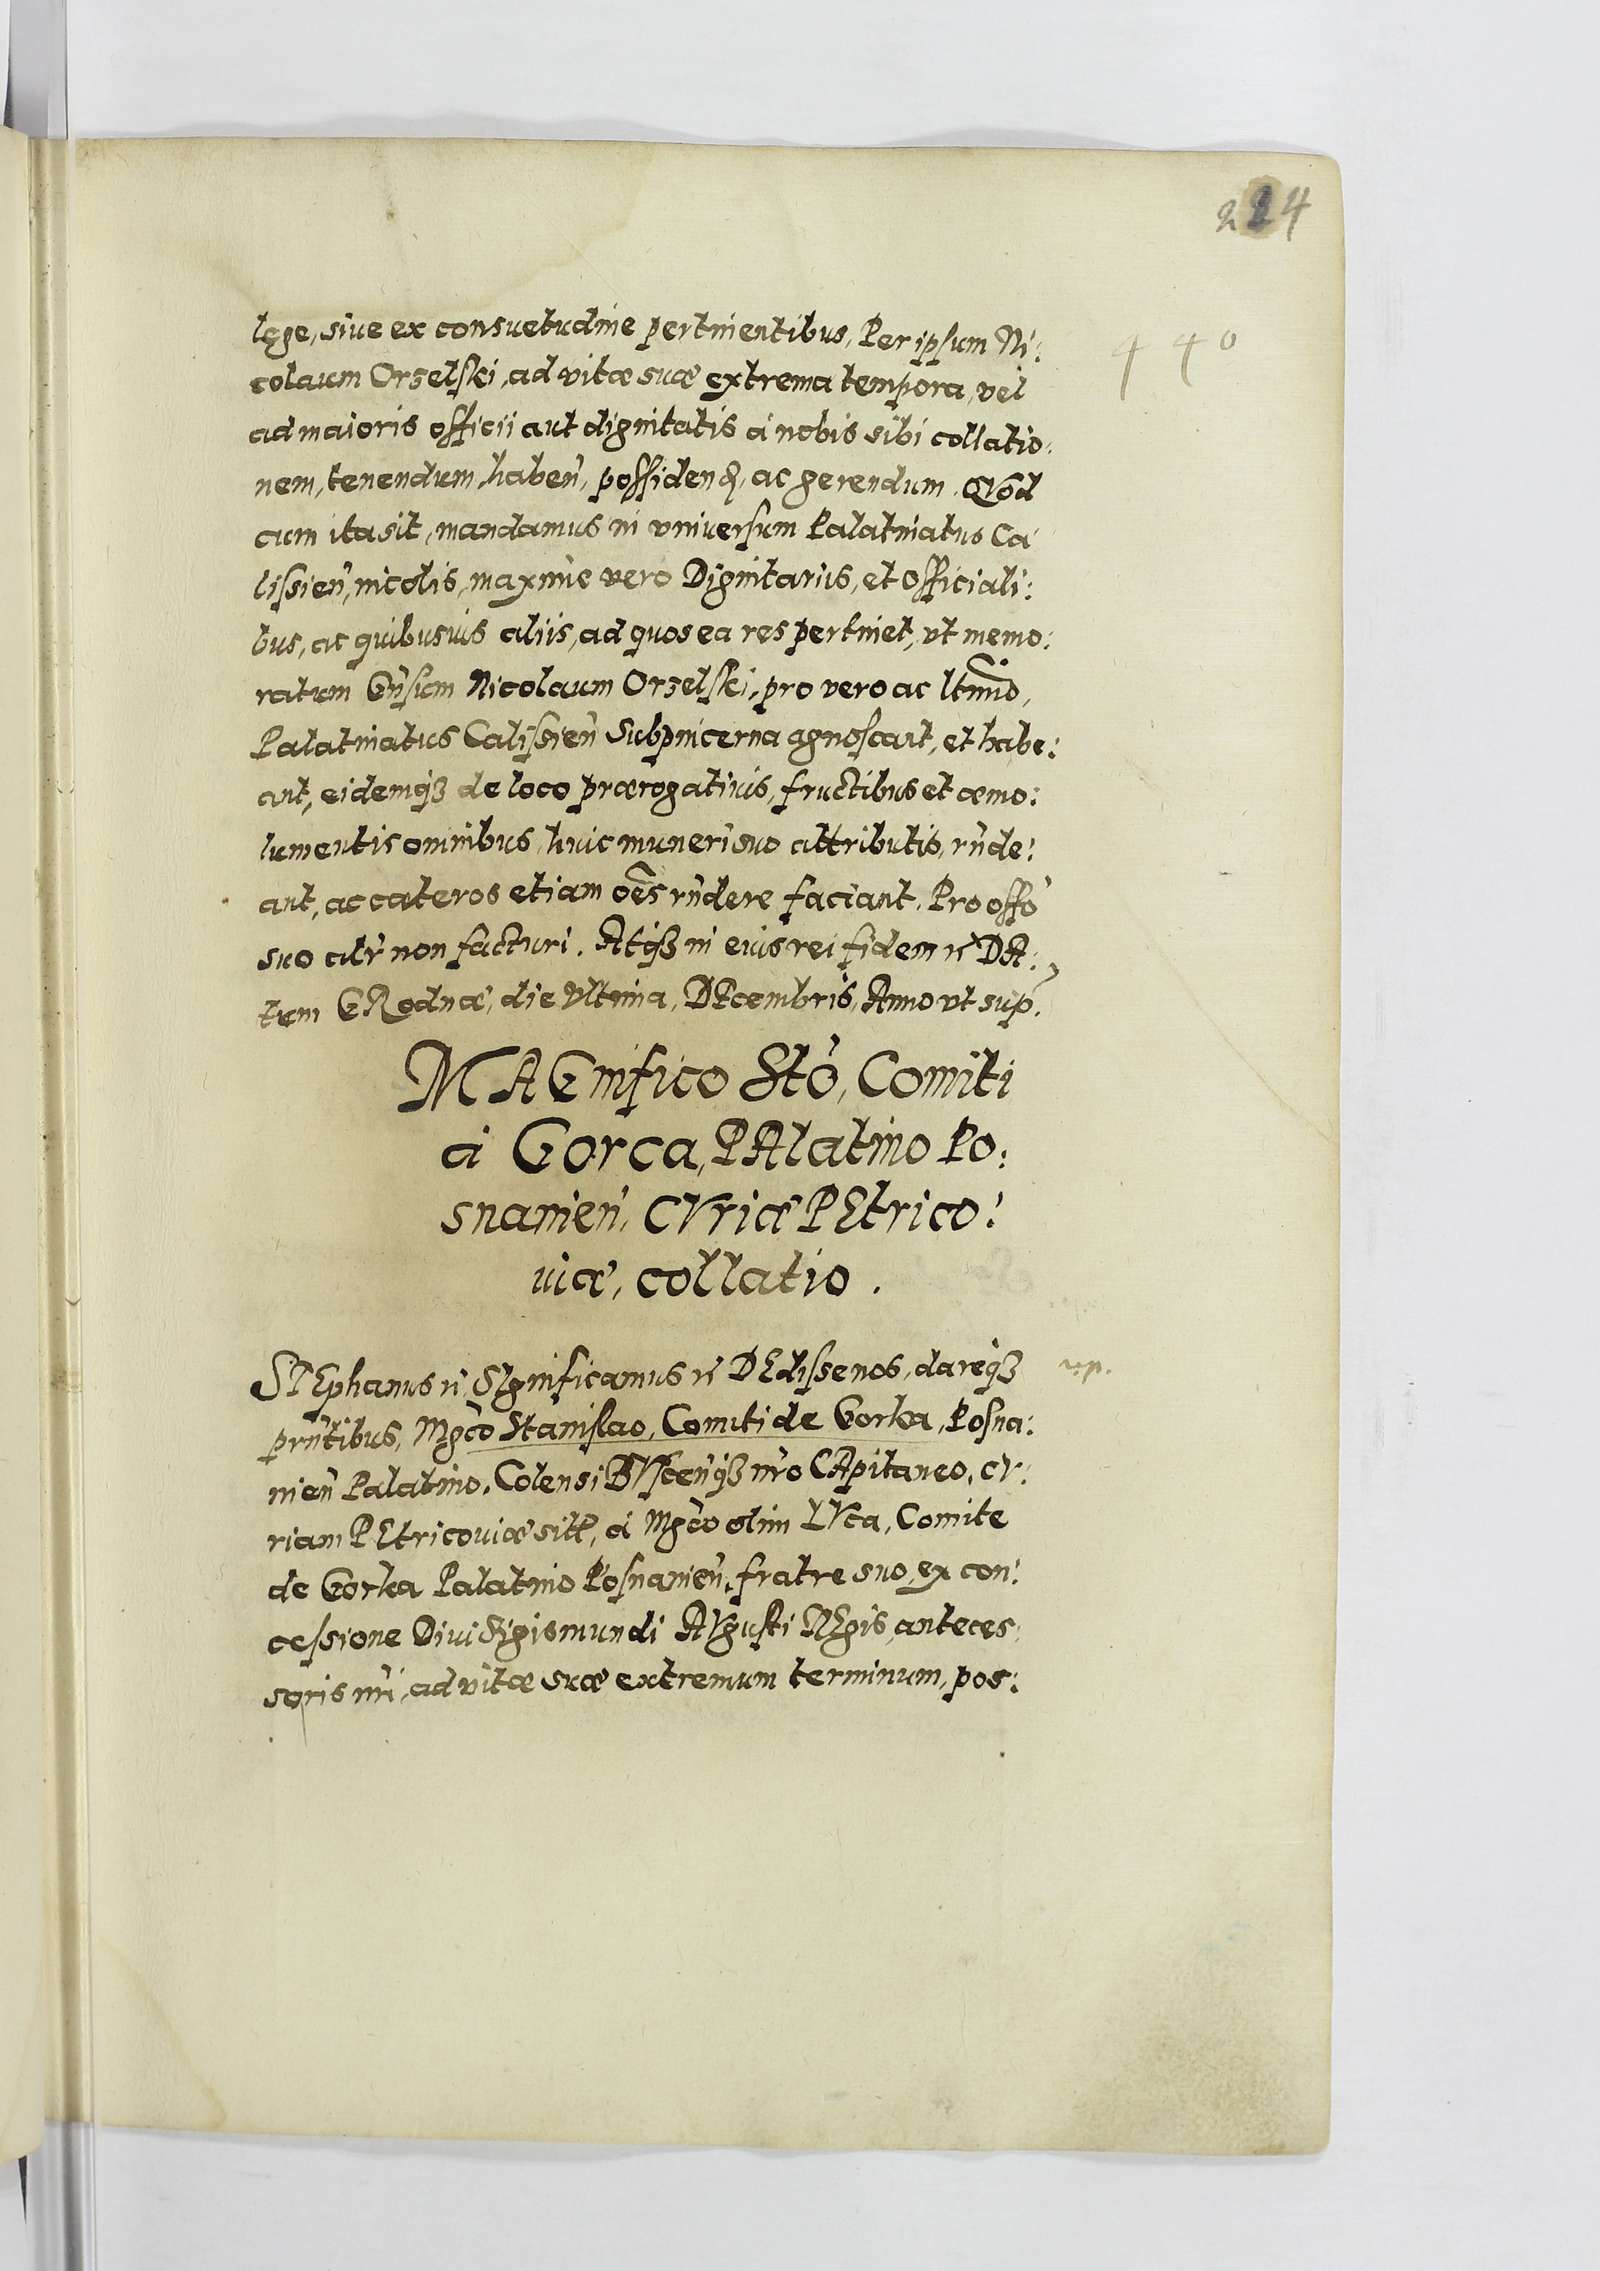 224
440
lęge, siue ex consuetudine pertinentibus, Per ipsum Ni:
colaum Orzelski, ad vitæ suæ extrema tempora, vel
ad maioris officii aut dignitatis à nobis sibi collatio:
nem, tenendum, habeñ, possidenḍ, ac gerendum. QVod
cum ita sit, mandamus in vniversum Palatinatus Ca
lissieñ, incolis, maxime vero Dignitariis, et Officiali:
bus, ac quibusuis aliis, ad quos ea res pertinet, vt memo:
ratum Gñsum Nicolaum Orzelski, pro vero ac ltimo,
Palatinatus Calissieñ Subpincerna agnoscant, et habe:
ant, eidemqꝫ de loco prærogatiuis, fructibus et æmo:
lumentis omnibus, huic muneri suo attributis, rñde:
ant, ac cæteros etiam oẽs rñdere faciant. Pro offõ
suo alr̃ non facturi. Atqꝫ in eius rei fidem ꝛc DA:
tum GRodnæ, die Vltima, DEcembris, Anno vt sup.
MAGnifico Stõ, Comiti
à Gorca, PAlatino Po:
snanieñ, CVriæ PEtrico:
uiæ, collatio.
STEphanus ꝛc SIgnificamus ꝛc DEdisse nos, dareqꝫ
vp.
prñtibus, Mgco Stanislao, Comiti de Gorka, Posna:
nieñ Palatino, Colensi BVsceñqꝫ nr̃o CApitaneo, CV:
riam PEtricouiæ sitã, à Mgco olim LVca, Comite
de Gorka Palatino Posnanieñ, fratre suo, ex con:
cessione Diui Sigismundi AVgusti REgis, anteces:
soris nr̃i, ad vitæ suæ extremum terminum, pos: